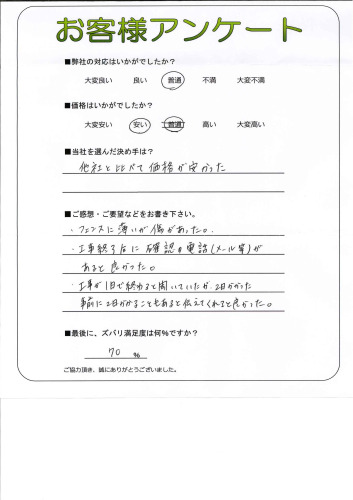 お客様アンケート
■弊社の対応はいかがでしたか?
大変良い 良い 普通 不満 大変不満
■価格はいかがでしたか?
大変安い 安い 普通 高い 大変高い
■当社を選んだ決め手は?
他社と比べて価格が安かった
■ご感想・ご要望などをお書き下さい。
・フェンスに薄いが傷があった。
・工事終了后に確認の電話(メール等)が
あると良かった。
・工事が1日で終わると聞いていたが、2日かかった
事前に2日かかることもあると伝えてくれると良かった。
■最後に、ズバリ満足度は何%ですか?
70 %
ご協力頂き、誠にありがとうございました。